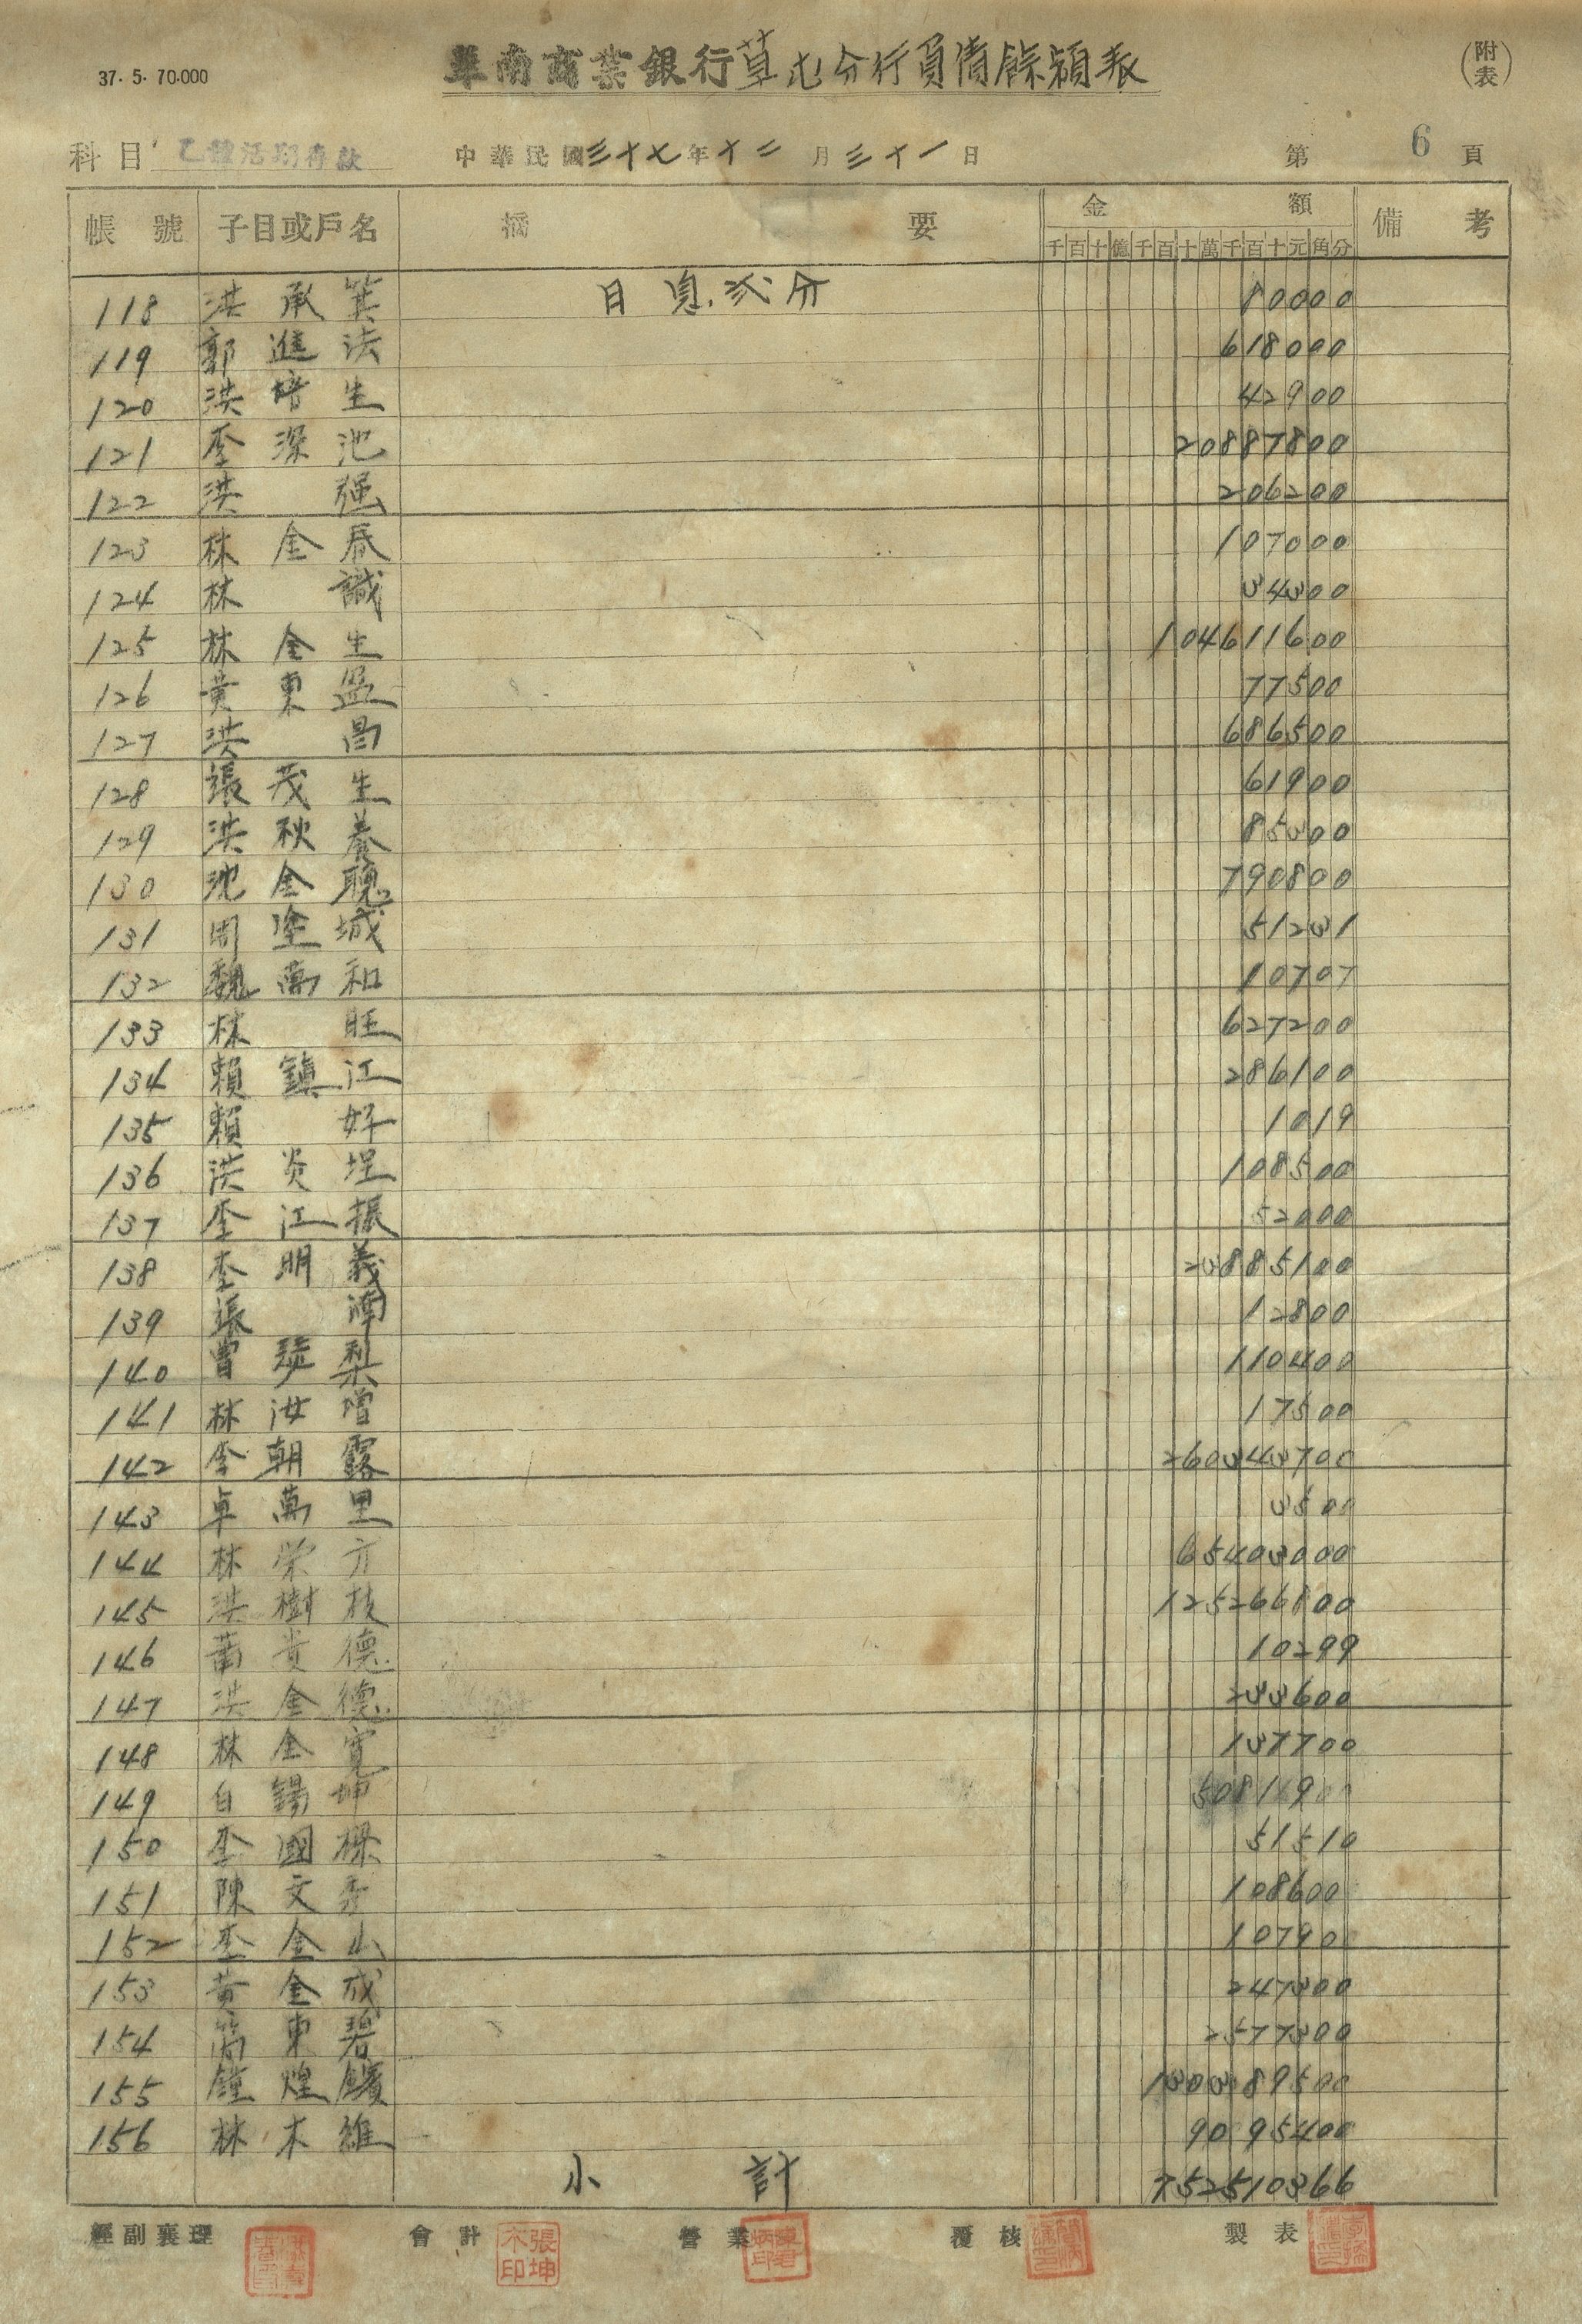 37. 5. 70.000
華南商業銀行草屯分行負債餘額表
(附表)
科目 乙種活期存款 中華民國三十七年十二月三十一日 第6頁
帳號 子目或戶名 摘要 金額 備考
千百十億千百十萬千百十元角分
118 洪承箕 日息.弍分 80000
119 郭進法 618000
120 洪培生 42900
121 李深池 20887800
122 洪強 206200
123 林金春 107000
124 林誠 34300
125 林金生 104611600
126 黃東盟 77500
127 洪昌 686500
128 張茂生 61900
129 洪秋養 85300
130 沈金聰 790800
131 周塗城 51231
132 魏萬和 10707
133 林旺 627200
134 賴鎮江 286100
135 賴好 1019
136 洪炎埕 108500
137 李江振 52000
138 李明義 23885100
139 張 12800
140 曾梨 110400
141 林汝增 17500
142 李朝露 260343700
143 卓萬里 3500
144 林榮方 65403000
145 洪樹枝 125266800
146 貴德 10299
147 洪金德 233600
148 林金寬 137700
149 白錫坤 5081900
150 李國樑 51510
151 陳文秀 108600
152 李金山 107900
153 黃金成 247300
154 簡東碧 2577300
155 鐘煌 130389500
156 林木維 9095400
小計 752510366
經副襄理 會計 營業 覆核 製表
張坤
木印